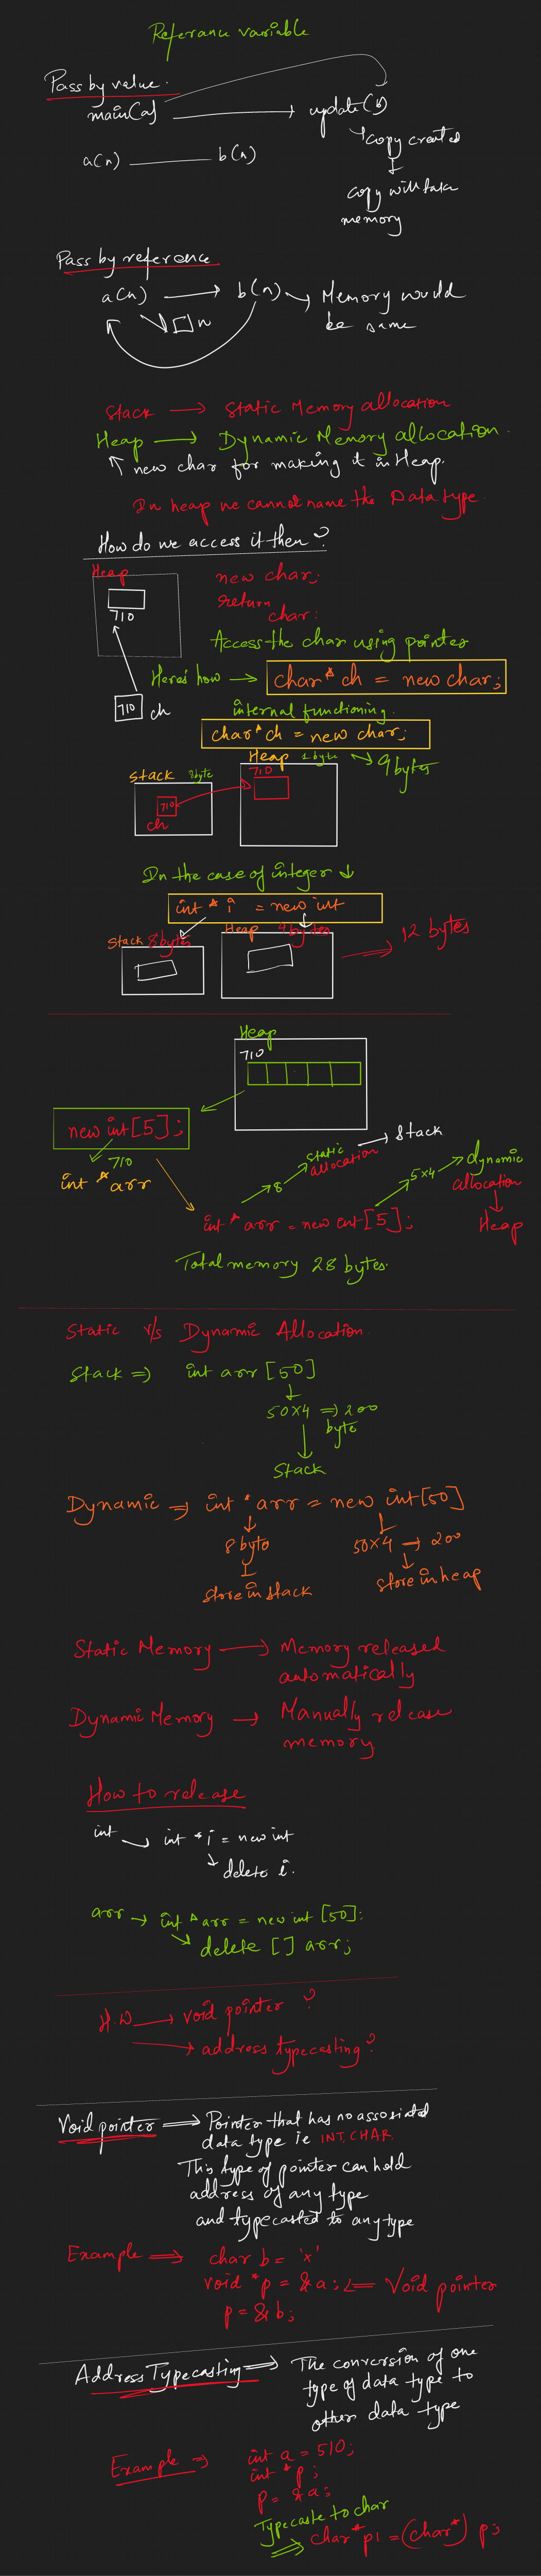 Referance variable
Pass by value.
main(a)
update(b)
copy created
copy will take
memory
a(n) b(n)
Pass by reference
a(n) b(n) Memory would
be same
n
Stack → Static Memory allocation
Heap → Dynamic Memory allocation.
new char for making it in Heap.
In heap we cannot name the Data type.
How do we access it then?
Heap
710
new char;
return
char:
Access the char using pointer
Here's how → char* ch = new char;
710 ch
internal functioning.
char* ch = new char;
Stack 8byte
Heap 1 byte → 9 bytes
710
710
ch
In the case of integer ↓
int * i = new int
Stack 8bytes
Heap 4 bytes
12 bytes
Heap
710
new int[5];
710
int * arr
8 → static allocation → Stack
5x4 → dynamic
allocation
Heap
int * arr = new int[5];
Total memory 28 bytes.
Static v/s Dynamic Allocation
Stack ⇒ int arr [50]
50x4 ⇒ 200
byte
Stack
Dynamic ⇒ int * arr = new int[50]
8 byte
store in stack
50x4 → 200
store in heap
Static Memory → Memory released
automatically
Dynamic Memory → Manually release
memory
How to release
int → int * i = new int
delete i.
arr → int * arr = new int [50];
delete [] arr;
H.W → void pointer ?
→ address typecasting?
Void pointer ⇒ Pointer that has no assosiated
data type ie INT, CHAR.
This type of pointer can hold
address of any type
and typecasted to any type
Example ⇒ char b = 'x'
void *p = &a; ⇐ Void pointer
p = &b;
Address Typecasting ⇒ The conversion of one
type of data type to
other data type
Example ⇒ int a = 510;
int * p;
p = &a;
Typecaste to char
⇒ char* p1 = (char*) p;